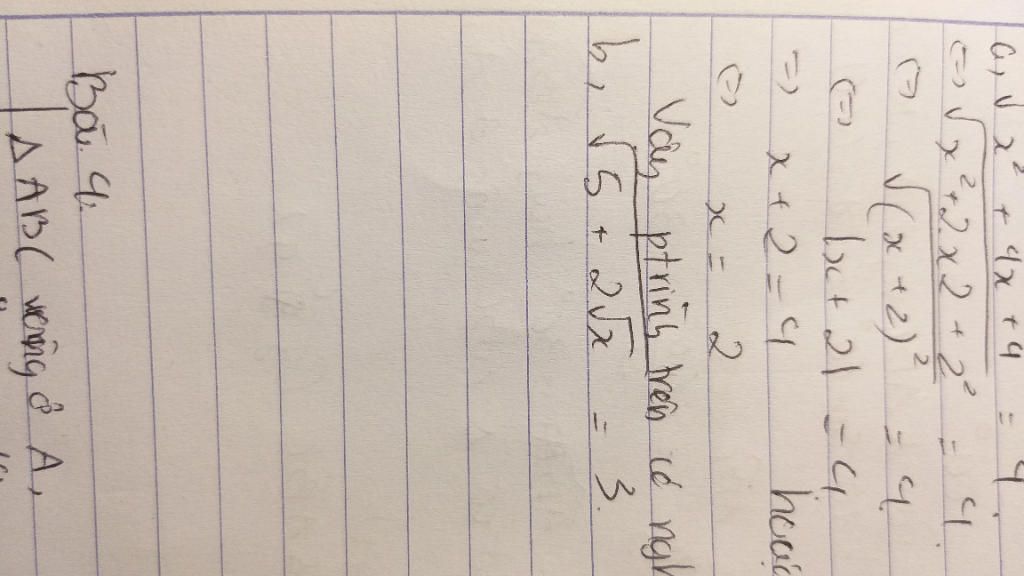 a, √x² + 4x + 4 = 4.
<=> √x² + 2x2 + 2² = 4.
<=> √(x + 2)² = 4
<=> |x + 2| = 4
=> x + 2 = 4 hoặc
<=> x = 2
Vậy ptrình trên có
b, √5 + 2√x = 3.
Bài 4.
Δ ABC vuông ở A,